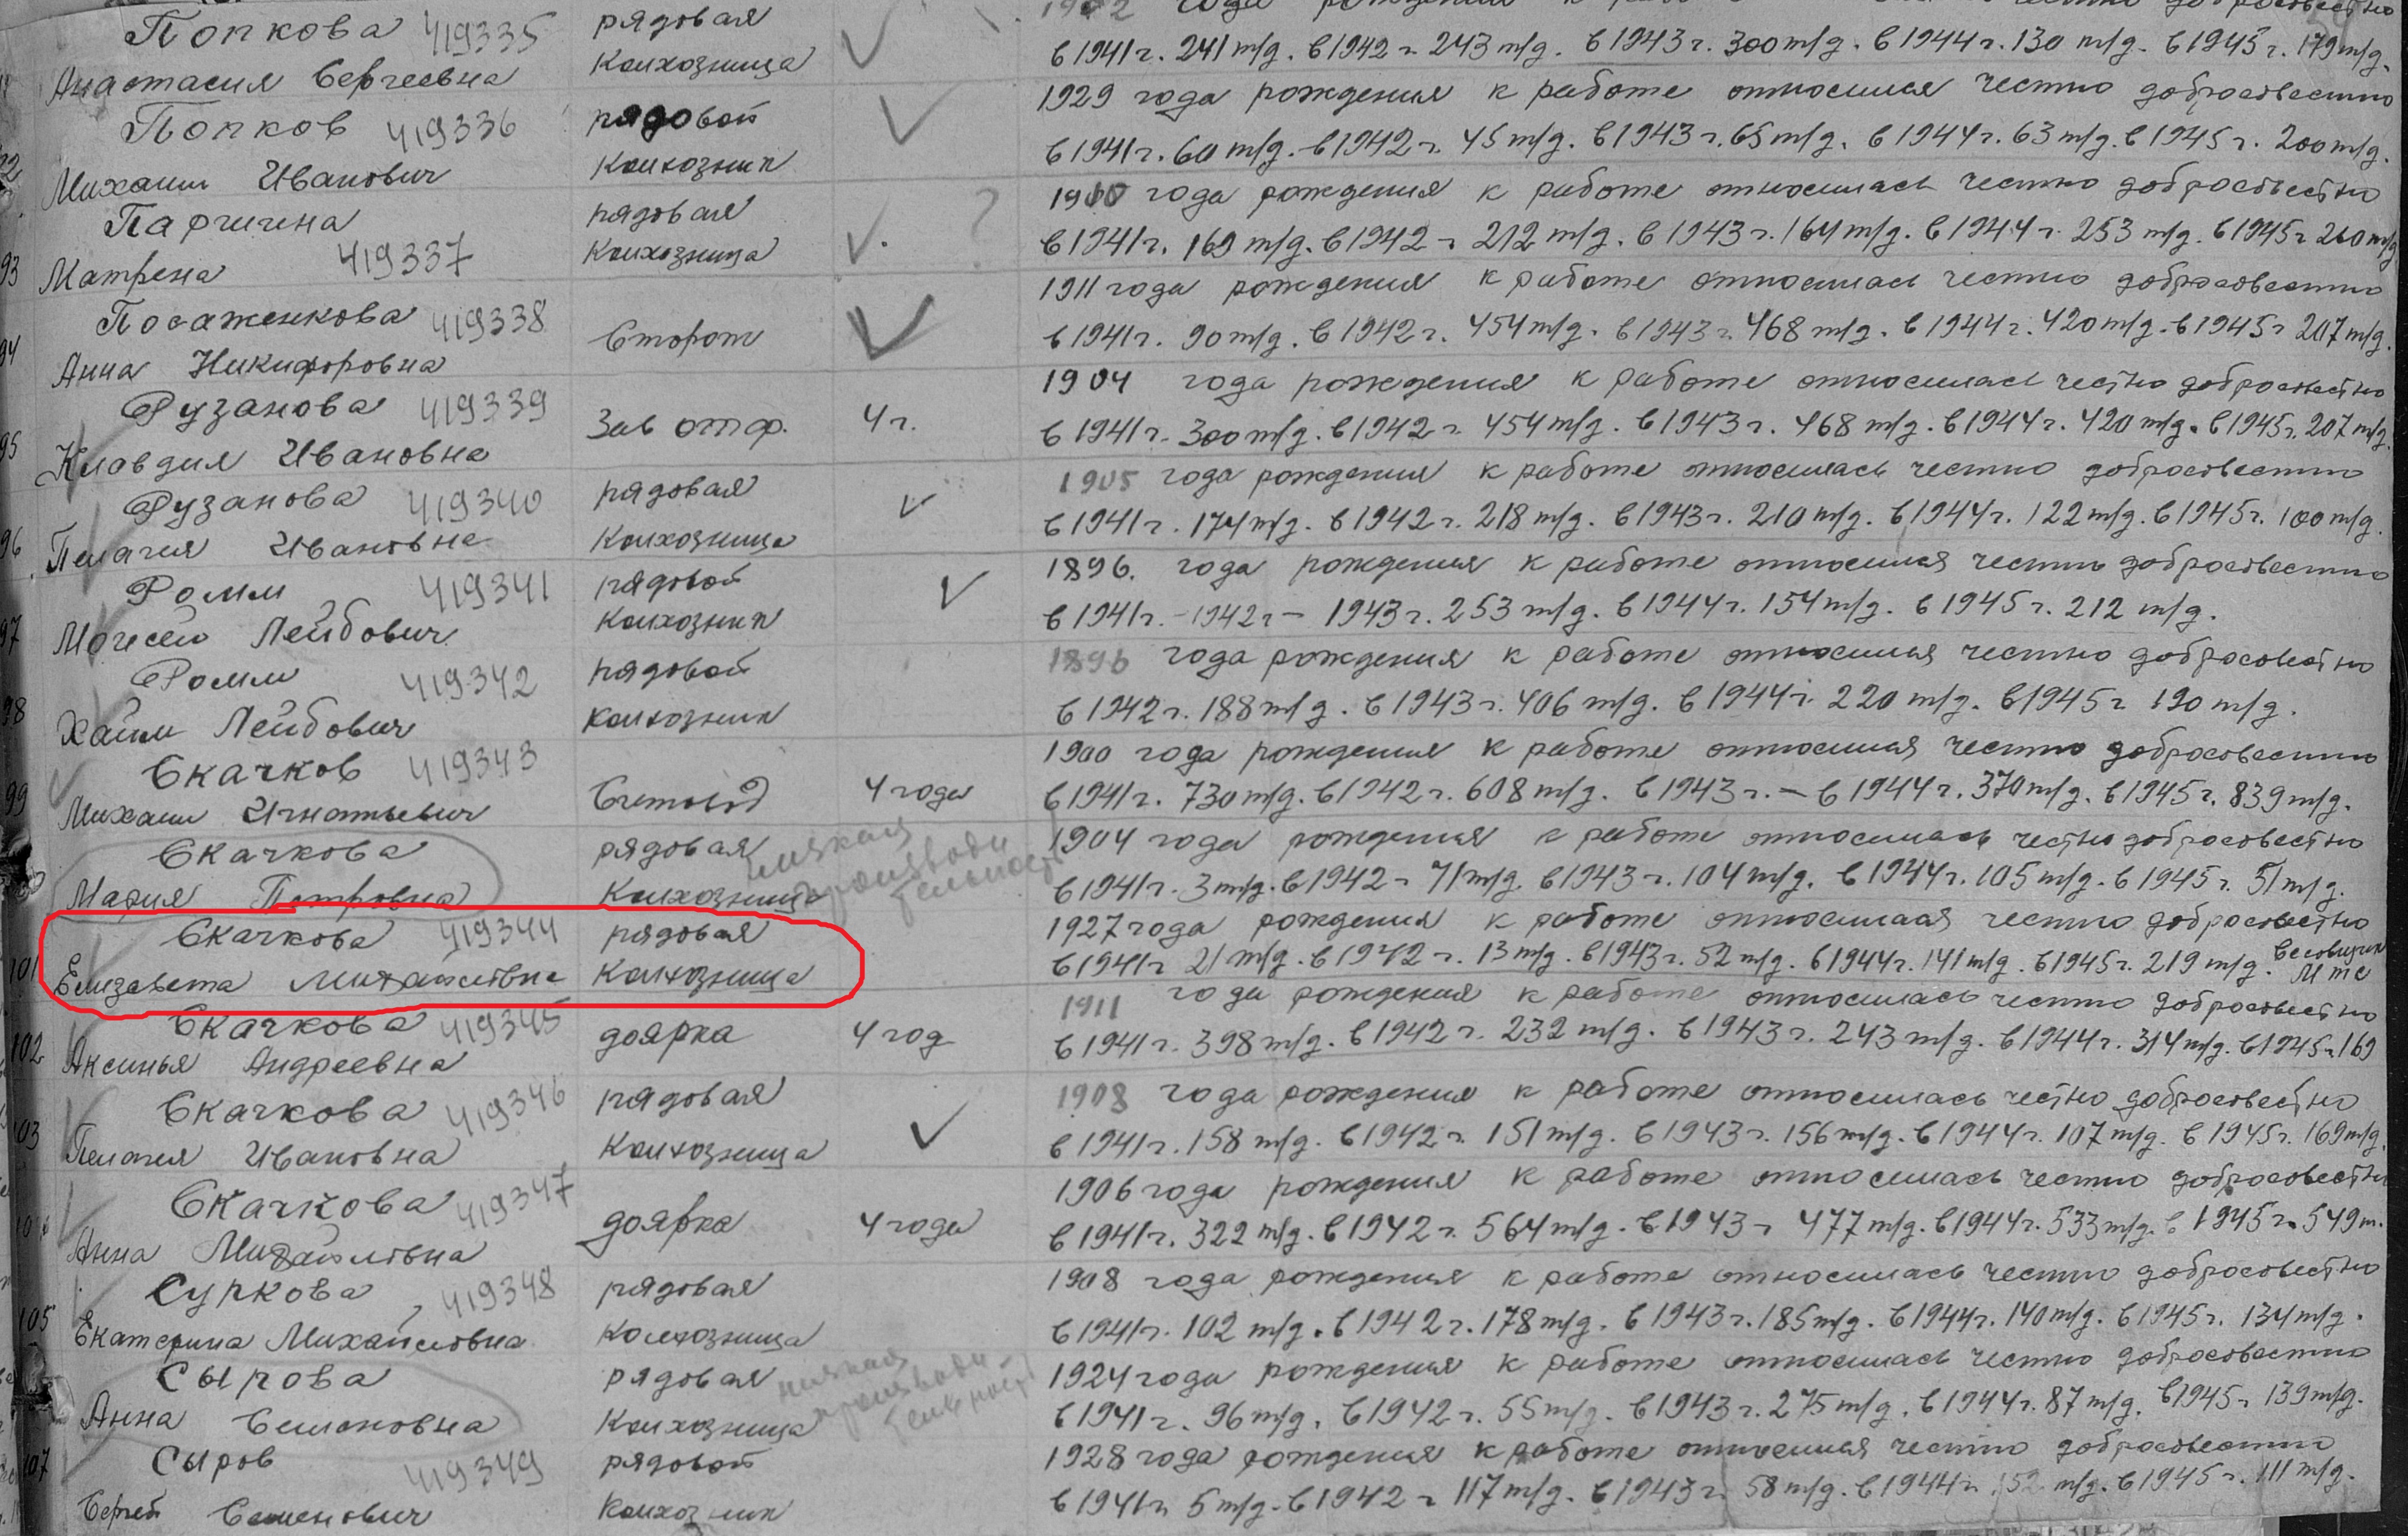 Попкова 419335 рядовая
Анастасия Сергеевна колхозница в 1941 г. 241 т/д. в 1942 г 243 т/д. в 1943 г. 300 т/д. в 1944 г. 130 т/д. в 1945 г. 179 т/д.
Попков 419336 рядовой 1929 года рождения к работе относился честно добросовестно
Михаил Иванович колхозник в 1941 г. 60 т/д. в 1942 г. 45 т/д. в 1943 г. 65 т/д. в 1944 г. 63 т/д. в 1945 г. 200 т/д.
Паршина рядовая ? 1900 года рождения к работе относилась честно добросовестно
93 Матрена 419337 колхозница в 1941 г. 169 т/д. в 1942 г 212 т/д. в 1943 г. 164 т/д. в 1944 г. 253 т/д. в 1945 г 260 т/д
Посаженкова 419338 Сторож 1911 года рождения к работе относилась честно добросовестно
94 Анна Никифоровна в 1941 г. 90 т/д. в 1942 г. 454 т/д. в 1943 г 468 т/д. в 1944 г. 420 т/д. в 1945 г 207 т/д.
Рузанова 419339 Зав от ф. 4 г. 1904 года рождения к работе относилась честно добросовестно
95 Клавдия Ивановна в 1941 г. 300 т/д. в 1942 г. 454 т/д. в 1943 г. 468 т/д. в 1944 г. 420 т/д. в 1945 г. 207 т/д.
Рузанова 419340 рядовая 1905 года рождения к работе относилась честно добросовестно
96 Пелагея Ивановна колхозница в 1941 г. 174 т/д. в 1942 г. 218 т/д. в 1943 г. 210 т/д. в 1944 г. 122 т/д. в 1945 г. 100 т/д.
Ромм 419341 рядовой 1896. года рождения к работе относился честно добросовестно
97 Моисей Лейбович колхозник в 1941 г. - 1942 г - 1943 г. 253 т/д. в 1944 г. 154 т/д. в 1945 г. 212 т/д.
Ромм 419342 рядовой 1896 года рождения к работе относился честно добросовестно
98 Хаим Лейбович колхозник в 1942 г. 188 т/д. в 1943 г. 406 т/д. в 1944 г. 220 т/д. в 1945 г 190 т/д.
Скачков 419343 1900 года рождения к работе относился честно добросовестно
99 Михаил Игнатьевич Счетовод 4 года в 1941 г. 730 т/д. в 1942 г. 608 т/д. в 1943 г. - в 1944 г. 370 т/д. в 1945 г. 839 т/д.
Скачкова рядовая низкая 1904 года рождения к работе относилась честно добросовестно
Мария Петровна колхозница производительность в 1941 г. 3 т/д. в 1942 г 71 т/д. в 1943 г. 104 т/д. в 1944 г. 105 т/д. в 1945 г. 51 т/д.
Скачкова 419344 рядовая 1927 года рождения к работе относилась честно добросовестно
101 Елизавета Михайловна колхозница в 1941 г 21 т/д. в 1942 г. 13 т/д. в 1943 г. 52 т/д. в 1944 г. 141 т/д. в 1945 г. 219 т/д. Весовщик
Скачкова 419345 доярка 4 год 1911 года рождения к работе относилась честно добросовестно
102 Аксинья Андреевна в 1941 г. 398 т/д. в 1942 г. 232 т/д. в 1943 г. 243 т/д. в 1944 г. 314 т/д. в 1945 г. 169
Скачкова 419346 рядовая 1908 года рождения к работе относилась честно добросовестно
103 Пелагея Ивановна колхозница в 1941 г. 158 т/д. в 1942 г. 151 т/д. в 1943 г. 156 т/д. в 1944 г. 107 т/д. в 1945 г. 169 т/д.
Скачкова 419347 доярка 4 года 1906 года рождения к работе относилась честно добросовестно
Анна Михайловна в 1941 г. 322 т/д. в 1942 г. 564 т/д. в 1943 г 477 т/д. в 1944 г. 533 т/д. в 1945 г. 549 т.
Суркова 419348 рядовая 1908 года рождения к работе относилась честно добросовестно
105 Екатерина Михайловна колхозница в 1941 г. 102 т/д. в 1942 г. 178 т/д. в 1943 г. 185 т/д. в 1944 г. 140 т/д. в 1945 г. 134 т/д.
Сырова рядовая низкая 1924 года рождения к работе относилась честно добросовестно
Анна Семеновна колхозница производительность в 1941 г. 96 т/д. в 1942 г. 55 т/д. в 1943 г. 275 т/д. в 1944 г. 87 т/д. в 1945 г. 139 т/д.
107 Сыров 419349 рядовой 1928 года рождения к работе относился честно добросовестно
Сергей Семенович колхозник в 1941 г. 5 т/д. в 1942 г 117 т/д. в 1943 г. 58 т/д. в 1944 г. 152 т/д. в 1945 г. 111 т/д.